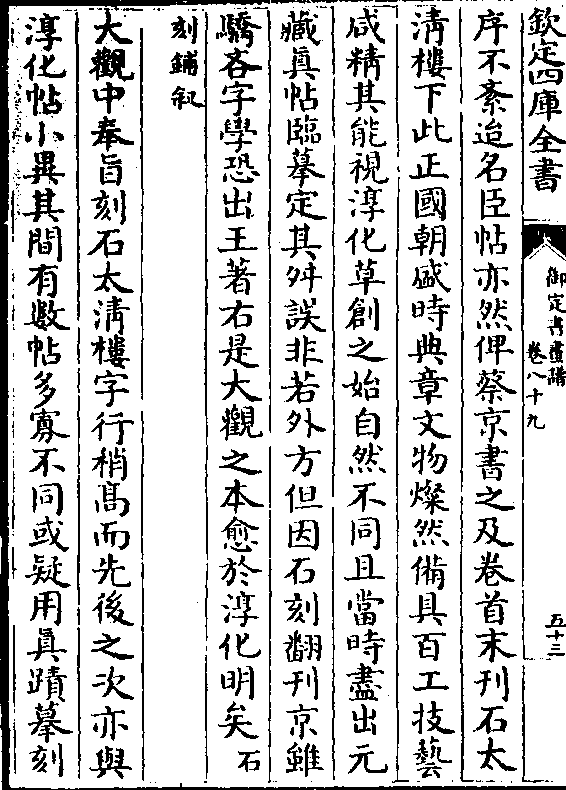 欽定四庫全書
御定書畫譜
卷八十九
五十三
序不紊迨名臣帖亦然俾蔡京書之及卷首末刊石太
淸樓下此正國朝盛時典章文物燦然俻具百工技藝
咸精其能視淳化草創之始自然不同且當時盡出元
藏眞帖臨摹定其舛誤非若外方但因石刻翻刊京雖
驕吝字學恐出王著右是大觀之本愈於淳化明矣石
刻鋪叙
大觀中奉旨刻石太淸樓字行稍髙而先後之次亦與
淳化帖小異其間有數帖多寡不同或疑用眞蹟摹刻